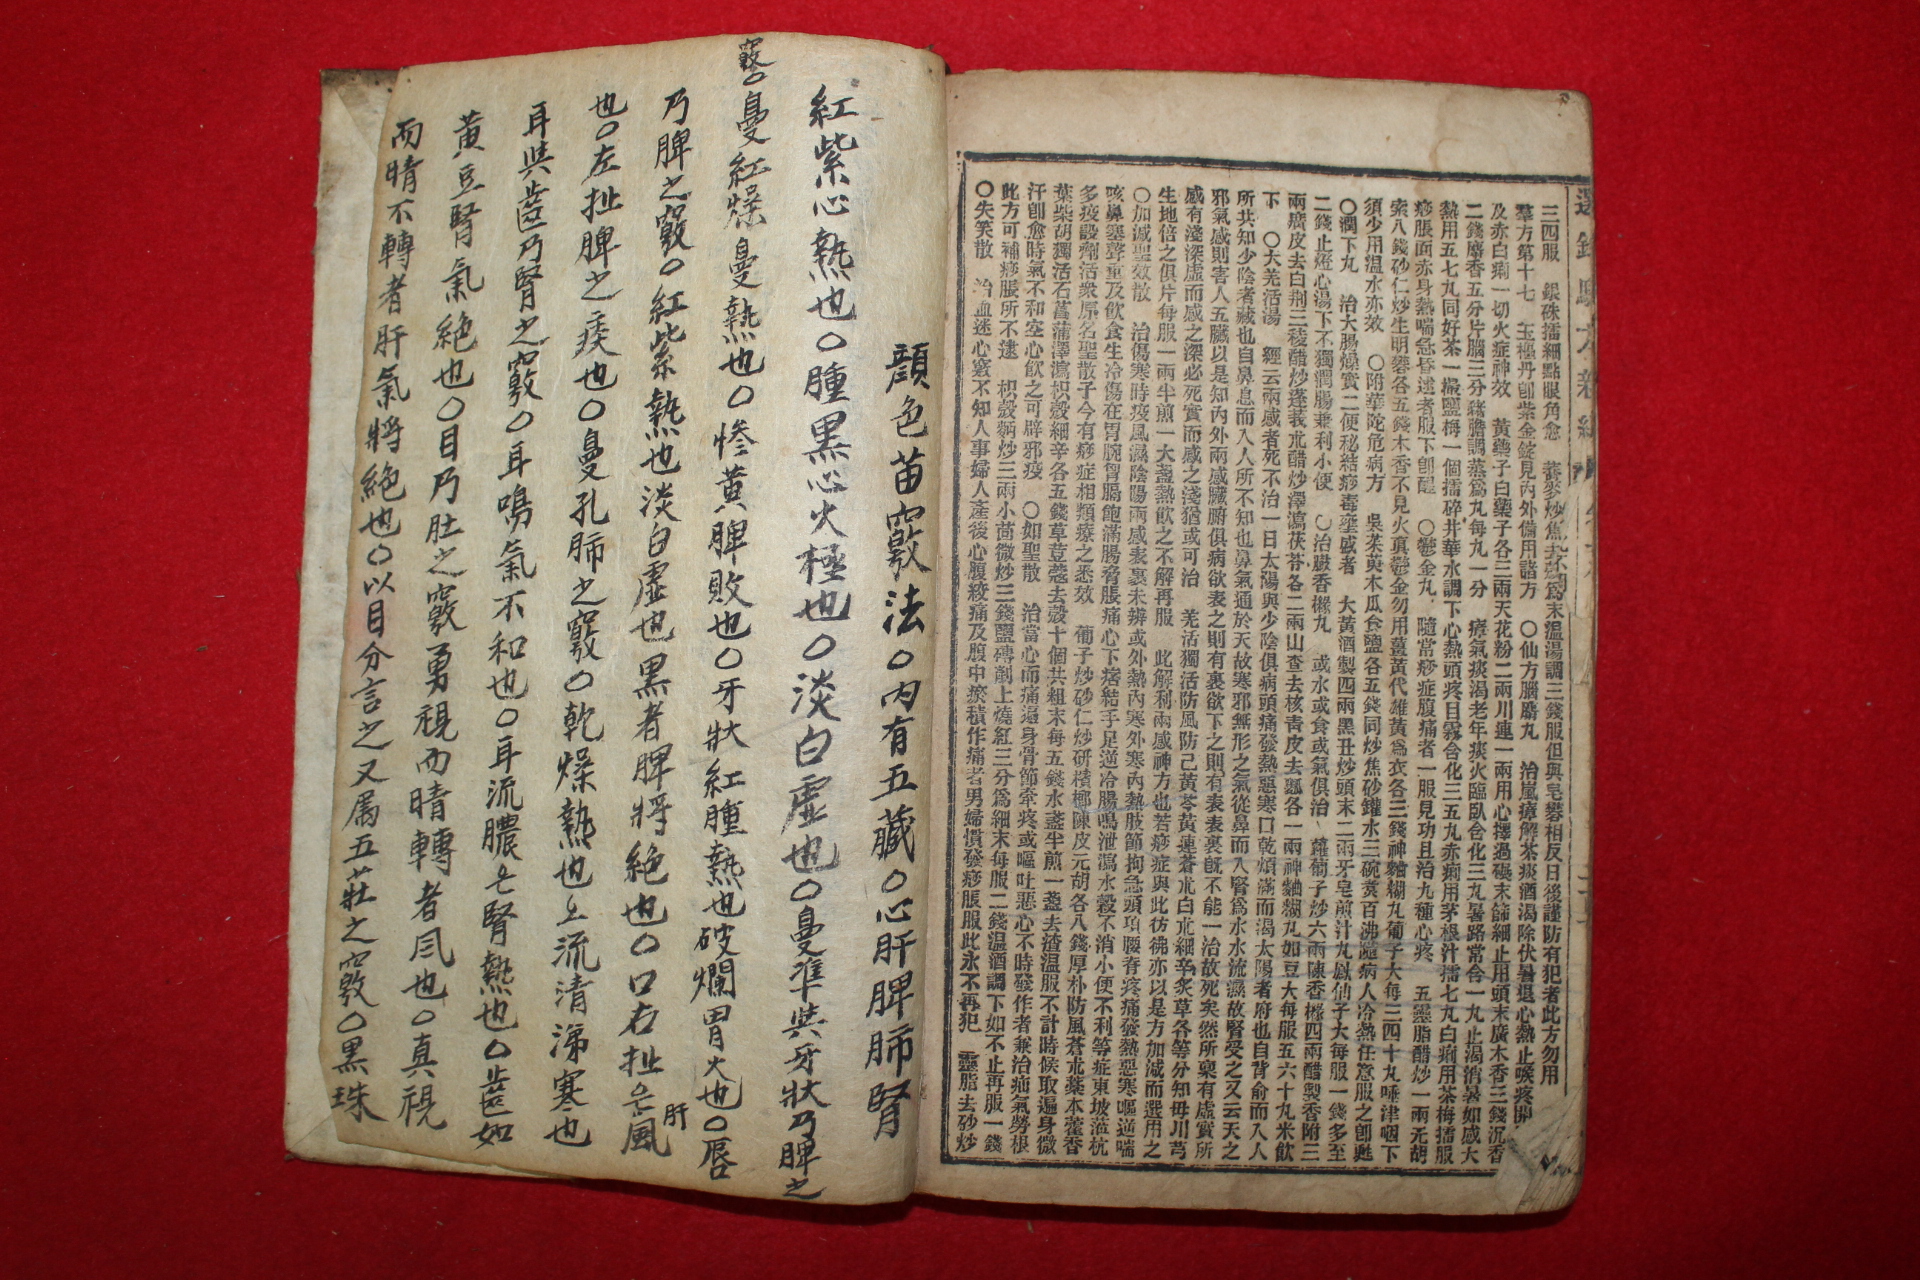 三四服　銀硃擂細點眼角愈　蕎麥炒焦去殼爲末溫湯調三錢服但與皂礬相反日後謹防有犯者此方勿用
羣方第十七　玉極丹卽紫金錠見內外備用諸方　〇仙方腦麝丸　治嵐瘴解茶痰酒渴除伏暑退心熱止喉疼開
及赤白痢一切火症神效　黃藥子白藥子各三兩天花粉二兩川連一兩用心擇過極末篩細止用頭末廣木香三錢沉香
二錢麝香五分片腦三分豬膽調蒸爲丸每丸一分　瘴氣痰渴老年痰火臨臥含化三九暑路常含一丸止渴消暑如感大
熱用五七丸同好茶一撮鹽梅一個擂碎井華水調下心熱頭疼目霧含化三五丸赤痢用茅根汁擂七丸白痢用茶梅擂服
痧脹面赤身熱喘急昏迷者服下卽醒　〇鬱金丸　隨常痧症腹痛者一服見功且治九種心疼　五靈脂醋炒一兩元胡
索八錢砂仁炒生明礬各五錢木香不見火眞鬱金勿用薑黃代雄黃爲衣各三錢神麯糊丸蔔子大每三四十丸唾津咽下
須少用溫水亦效　〇附華陀危病方　吳茱萸木瓜食鹽各五錢同炒焦砂鑵水三碗煑百沸隨病人冷熱任意服之卽甦
〇潤下丸　治大腸燥實二便秘結痧毒壅盛者　大黃酒製四兩黑丑炒頭末二兩牙皂煎汁丸鳳仙子大每服一錢多至
二錢止燈心湯下不獨潤腸兼利小便　〇治臌香橼丸　或水或食或氣俱治　蘿蔔子炒六兩陳香橼四兩醋製香附三
兩廣皮去白荆三稜醋炒蓬莪朮醋炒澤瀉茯苓各二兩山查去核靑皮去瓤各一兩神麯糊丸如豆大每服五六十丸米飮
下　〇大羌活湯　經云兩感者死不治一日太陽與少陰俱病頭痛發熱惡寒口乾煩滿而渴太陽者府也自背俞而入人
所共知少陰者藏也自鼻息而入人所不知也鼻氣通於天故寒邪無形之氣從鼻而入腎爲水水流濕故腎受之又云天之
邪氣感則害人五臟以是知內外兩感臟腑俱病欲表之則有裏欲下之則有表表裏旣不能一治故死矣然所稟有虛實所
感有淺深虛而感之深必死實而感之淺猶或可治　羌活獨活防風防己黃芩黃連蒼朮白朮細辛炙草各等分知毋川芎
生地倍之俱片每服一兩半煎一大盞熱飮之不解再服　此解利兩感神方也若痧症與此彷彿亦以是方加減而選用之
〇加減聖效散　治傷寒時疫風濕陰陽兩感表裏未辨或外熱內寒外寒內熱肢節拘急頭項腰脊疼痛發熱惡寒嘔逆喘
咳鼻塞聲重及飮食生冷傷在胃脘胷膈飽滿腸脅脹痛心下痞結手足逆冷腸鳴泄瀉水穀不消小便不利等症東坡蒞杭
多疫設劑活衆原名聖散子今有痧症相類療之悉效　蔔子炒砂仁炒研檳榔陳皮元胡各八錢厚朴防風蒼朮藁本藿香
葉柴胡獨活石菖蒲澤瀉枳殼細辛各五錢草荳蔻去殼十個共粗末每五錢水盞半煎一盞去渣溫服不計時候取遍身微
汗卽愈時氣不和空心飮之可辟邪疫　〇如聖散　治當心而痛遍身骨節牽疼或嘔吐惡心不時發作者兼治疝氣勞根
此方可補痧脹所不逮　枳殼麪炒三兩小茴微炒三錢鹽磚剷上燒紅三分爲細末每服二錢溫酒調下如不止再服一錢
〇失笑散　治血迷心竅不知人事婦人產後心腹絞痛及腹中瘀積作痛者男婦慣發痧脹服此永不再犯　靈脂去砂炒
顔色苗竅法〇內有五藏〇心肝脾肺腎
紅紫心熱也〇腫黑心火極也〇淡白虛也〇鼻準與牙狀乃脾之
竅〇鼻紅燥鼻熱也〇慘黃脾敗也〇牙狀紅腫熱也破爛胃火也〇唇
乃脾之竅〇紅紫熱也淡白虛也黑者脾將絕也〇口右扯是肝風
也〇左扯脾之痰也〇鼻孔肺之竅〇乾燥熱也上流清涕寒也
耳與齒乃腎之竅〇耳鳴氣不和也〇耳流膿是腎熱也〇齒如
黃豆腎氣絕也〇目乃肚之竅勇視而睛轉者風也〇真視
而睛不轉者肝氣將絕也〇以目分言之又属五莊之竅〇黑珠